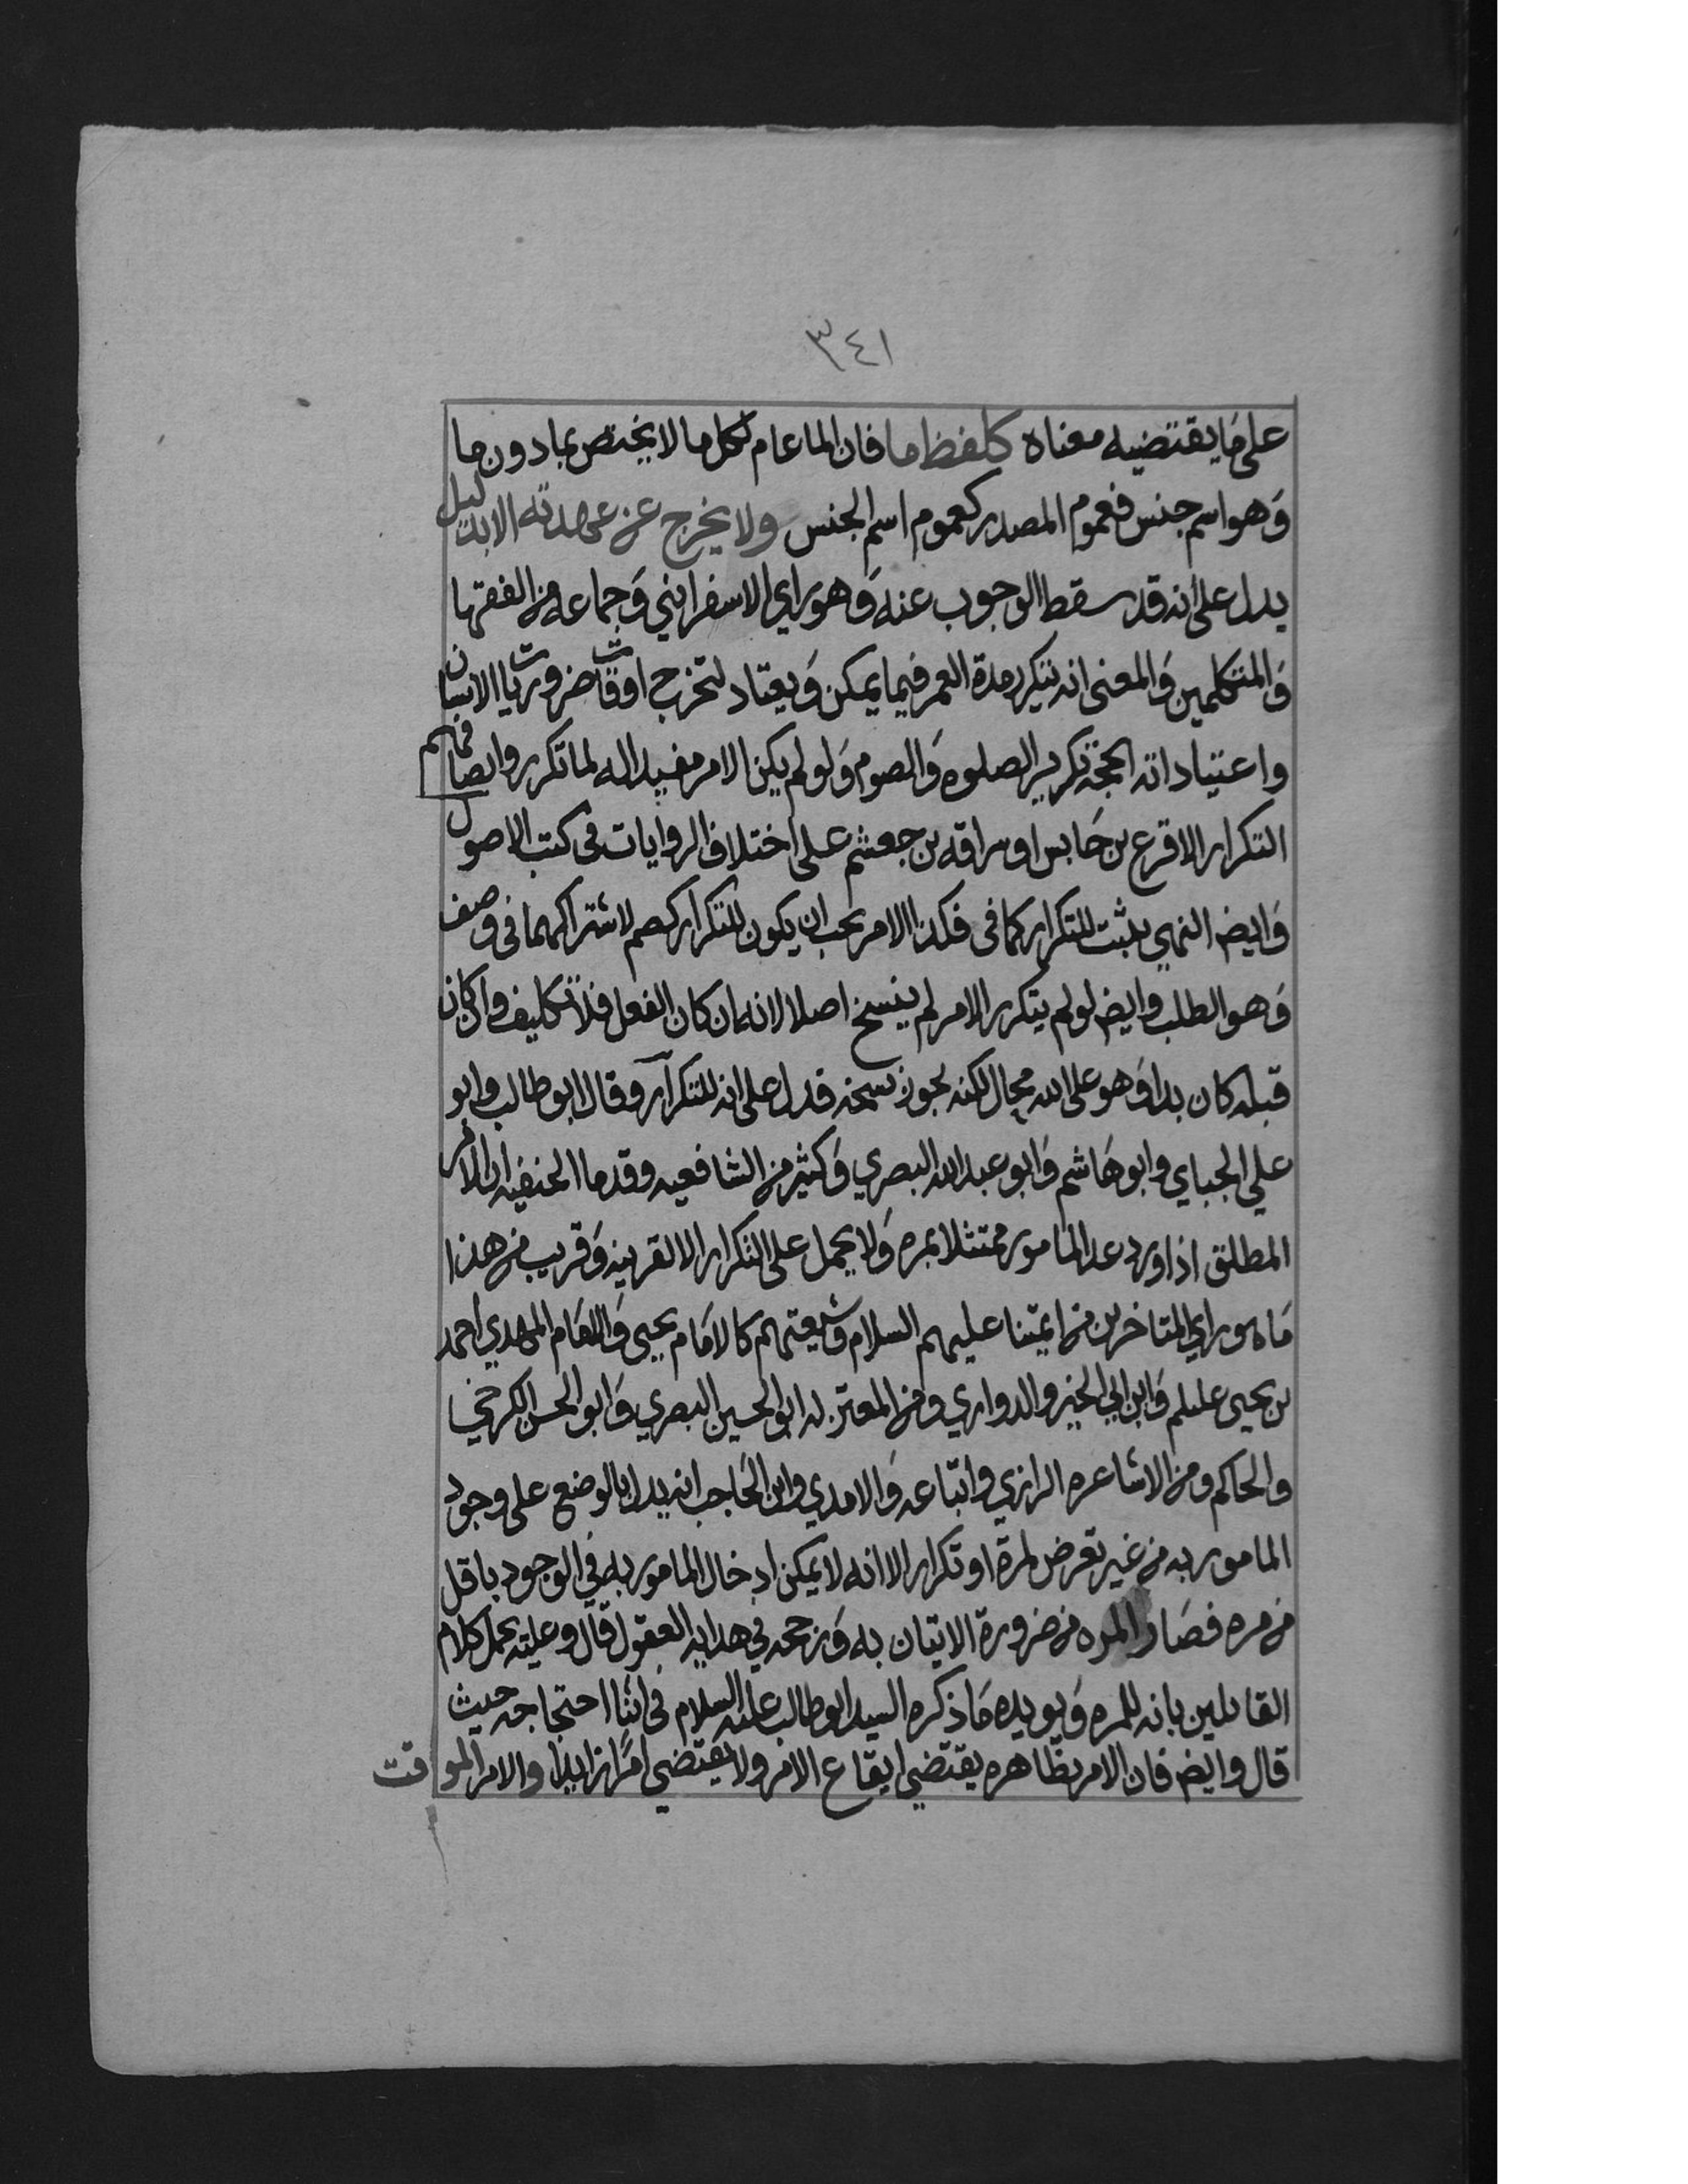 ٣٤١
على ما يقتضيه معناه كلفظ ما فان الما عام لكل ما لا يختص بما دون ما
وهو اسم جنس فعموم المصدر كعموم اسم الجنس ولا يخرج عن عهدته الا بدليل
يدل على انه قد سقط الوجوب عنه وهو راي الاسفرايني وجماعه من الفقها
والمتكلمين والمعنى انه يتكرر مدة العمر فيما يمكن ويعتاد لتخرج اوقات ضروريات الانسان
واعتياداته الحجة تكرير الصلوه والصوم ولو لم يكن الامر مفيدا له لما تكرر وايضا فهم
التكرار الاقرع بن حابس او سراقه بن جعشم على اختلاف الروايات في كتب الاصول
وايض النهي يثبت للتكرار كما في فكذا الامر يجب ان يكون للتكرار كصم لاشتراكهما في وصف
وهو الطلب وايض لو لم يتكرر الامر لم ينسخ اصلا لانه ان كان الفعل فلا تكليف وان كان
قبله كان بدا وهو على الله محال لكنه يجوز نسخه فدل على انه للتكرار وقال ابو طالب وابو
علي الجباي وابو هاشم وابو عبد الله البصري وكثير من الشافعيه وقدما الحنفيه ان الامر
المطلق اذا ورد عد المامور ممتثلا بمره ولا يحمل على التكرار الا لقرينه وقريب من هذا
ما هو راي المتاخرين من ايمتنا عليهم السلام وشيعتهم كالامام يحيى والامام المهدي احمد
بن يحيى عليلم وابن ابي الخير والدواري ومن المعتزله ابو الحسين البصري وابو الحسن الكرخي
والحاكم ومن الاشاعره الرازي واتباعه والامدي وابن الحاجب انه يدل بالوضع على وجود
المامور به من غير تعرض لمرة او تكرار الا انه لا يمكن ادخال المامور به في الوجود باقل
من مره فصار المره من ضرورة الاتيان به ورجحه في هدايه العقول قال وعليه يحمل كلام
القايلين بانه للمره ويويده ما ذكره السيد ابو طالب عليه السلام في اثنا احتجاجه حيث
قال وايض فان الامر بظاهره يقتضي ايقاع الامر ولا يقتضي امرا زايدا والامر الموقت